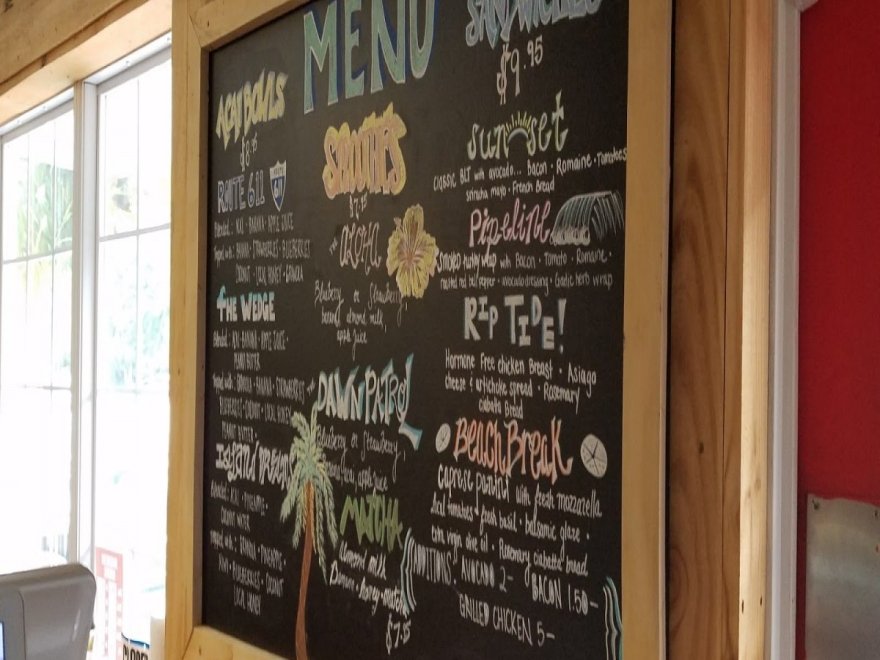 MENU
ACAI BOWLS
ROUTE 611
611
Blended: ACAI · BANANA · APPLE JUICE
Topped with: BANANA · STRAWBERRIES · BLUEBERRIES
COCONUT · LOCAL HONEY · GRANOLA
THE WEDGE
Blended: ACAI · BANANA · APPLE JUICE ·
PEANUT BUTTER
Topped with: BANANA · STRAWBERRIES
BLUEBERRIES · COCONUT · LOCAL HONEY
PEANUT BUTTER
ISLAND DREAMS
Blended: ACAI · PINEAPPLE ·
COCONUT WATER
Topped with: BANANA · PINEAPPLE ·
BLUEBERRIES · COCONUT
LOCAL HONEY
SMOOTHIES
ALOHA
Blueberry or Strawberry
banana, almond milk,
apple juice
DAWN PATROL
Blueberry or Strawberry,
apple juice
MATCHA
Almond milk
Banana · honey · matcha
$7.95
SANDWICHES
$9.95
sunset
Classic BLT with avocado... Bacon · Romaine · Tomatoes
sriracha mayo · French Bread
Pipeline
Smoked turkey wrap with Bacon · Tomato · Romaine ·
roasted red bell pepper · avocado dressing · Garlic herb wrap
RIP TIDE!
Hormone Free chicken Breast · Asiago
cheese & artichoke spread · Rosemary
ciabatta Bread
Beach Break
caprese panini with fresh mozzarella
tomatoes · fresh basil · balsamic glaze ·
extra virgin olive oil · Rosemary ciabatta bread
ADDITIONS: AVOCADO 2- BACON 1.50-
GRILLED CHICKEN 5-